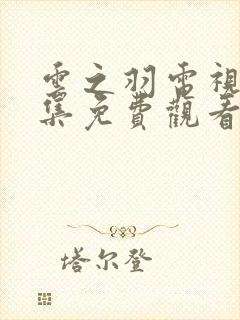 雲之羽電視
集免費觀看
塔尔登